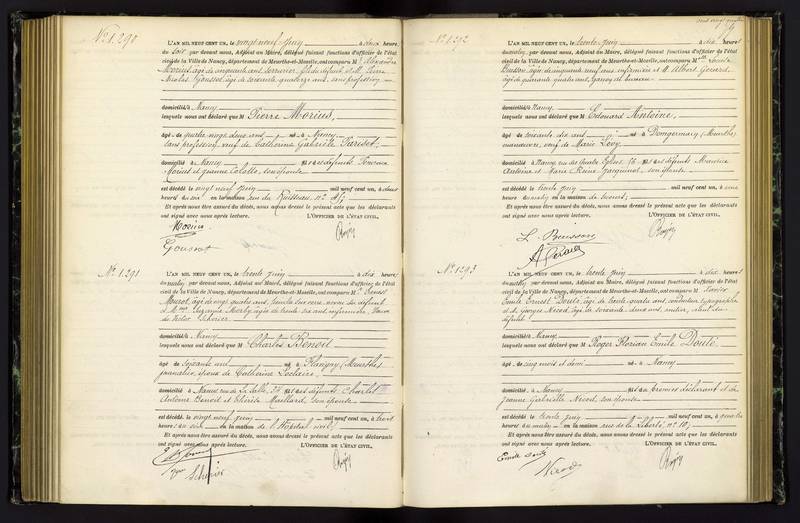 N° 1.290
L'AN MIL NEUF CENT UN, le vingt neuf Juin à deux heures
du soir par devant nous, Adjoint au Maire, délégué faisant fonctions d'officier de l'état
civil de la Ville de Nancy, département de Meurthe-et-Moselle, ont comparu M Alexandre
Morius, âgé de cinquante cinq serrurier, fils du défunt, et M. Pierre
Nicolas Goussot, âgé de soixante quatorze ans, sans profession
domiciliés à Nancy
lesquels nous ont déclaré que M Pierre Morius,
âgé de quatre vingt deux ans, né à Nancy
sans profession, veuf de Catherine Gabrielle Pariset,
domicilié à Nancy fils des défunts
Morius et Jeanne Lolotte, son épouse
est décédé le vingt neuf Juin mil neuf cent un, à deux
heures du soir en la maison rue du Ruisseau, n°
Et après nous être assuré du décès, nous avons dressé le présent acte que les déclarants
ont signé avec nous après lecture. L'OFFICIER DE L'ÉTAT CIVIL,
Morius
Goussot
N° 1.291
L'AN MIL NEUF CENT UN, le trente Juin à dix heures
du matin par devant nous, Adjoint au Maire, délégué faisant fonctions d'officier de l'état
civil de la Ville de Nancy, département de Meurthe-et-Moselle, ont comparu M Ernest
âgé de vingt quatre ans, neveu du défunt
et Mme Suzanne âgée de trente six ans, infirmière,
domiciliés à Nancy
lesquels nous ont déclaré que M Charles Benoit
âgé de soixante ans né à Flavigny (Meurthe)
journalier, époux de Catherine Leclaire,
domicilié à Nancy, rue de La Salle, fils des défunts Charles
Antoine Benoit et Maillard, son épouse
est décédé le vingt neuf Juin mil neuf cent un, à trois
heures du soir en la maison de l'Hôpital civil;
Et après nous être assuré du décès, nous avons dressé le présent acte que les déclarants
ont signé avec nous après lecture. L'OFFICIER DE L'ÉTAT CIVIL,
N° 1.292
L'AN MIL NEUF CENT UN, le trente Juin à dix heures
du matin par devant nous, Adjoint au Maire, délégué faisant fonctions d'officier de l'état
civil de la Ville de Nancy, département de Meurthe-et-Moselle, ont comparu M
Buisson, âgé de cinquante neuf ans, infirmier et M Albert Gérard,
âgé de quarante quatre ans, garçon de bureau
domiciliés à Nancy
lesquels nous ont déclaré que M Edouard Antoine,
âgé de soixante dix ans né à Domgermain (Meurthe)
manœuvre, veuf de Marie Lévy,
domicilié à Nancy, rue des Quatre Eglises, 76 fils des défunts Maurice
Antoine et Marie Reine Jacquinot, son épouse
est décédé le trente Juin mil neuf cent un, à une
heure du matin en la maison de secours;
Et après nous être assuré du décès, nous avons dressé le présent acte que les déclarants
ont signé avec nous après lecture. L'OFFICIER DE L'ÉTAT CIVIL,
L. Buisson
A Gérard
N° 1.293
L'AN MIL NEUF CENT UN, le trente Juin à dix heures
du matin par devant nous, Adjoint au Maire, délégué faisant fonctions d'officier de l'état
civil de la Ville de Nancy, département de Meurthe-et-Moselle, ont comparu M
Emile Ernest Douté, âgé de trente quatre ans, conducteur typographe
et M. Georges Nicod, âgé de soixante deux ans, aïeul du
défunt
domiciliés à Nancy
lesquels nous ont déclaré que M Roger Florian Emile Douté,
âgé de cinq mois et demi né à Nancy
domicilié à Nancy fils du premier déclarant et de
Jeanne Gabrielle Nicod, son épouse
est décédé le trente Juin mil neuf cent un, à quatre
heures du matin en la maison rue de la Liberté, n° 10;
Et après nous être assuré du décès, nous avons dressé le présent acte que les déclarants
ont signé avec nous après lecture. L'OFFICIER DE L'ÉTAT CIVIL,
Emile Douté
Nicod